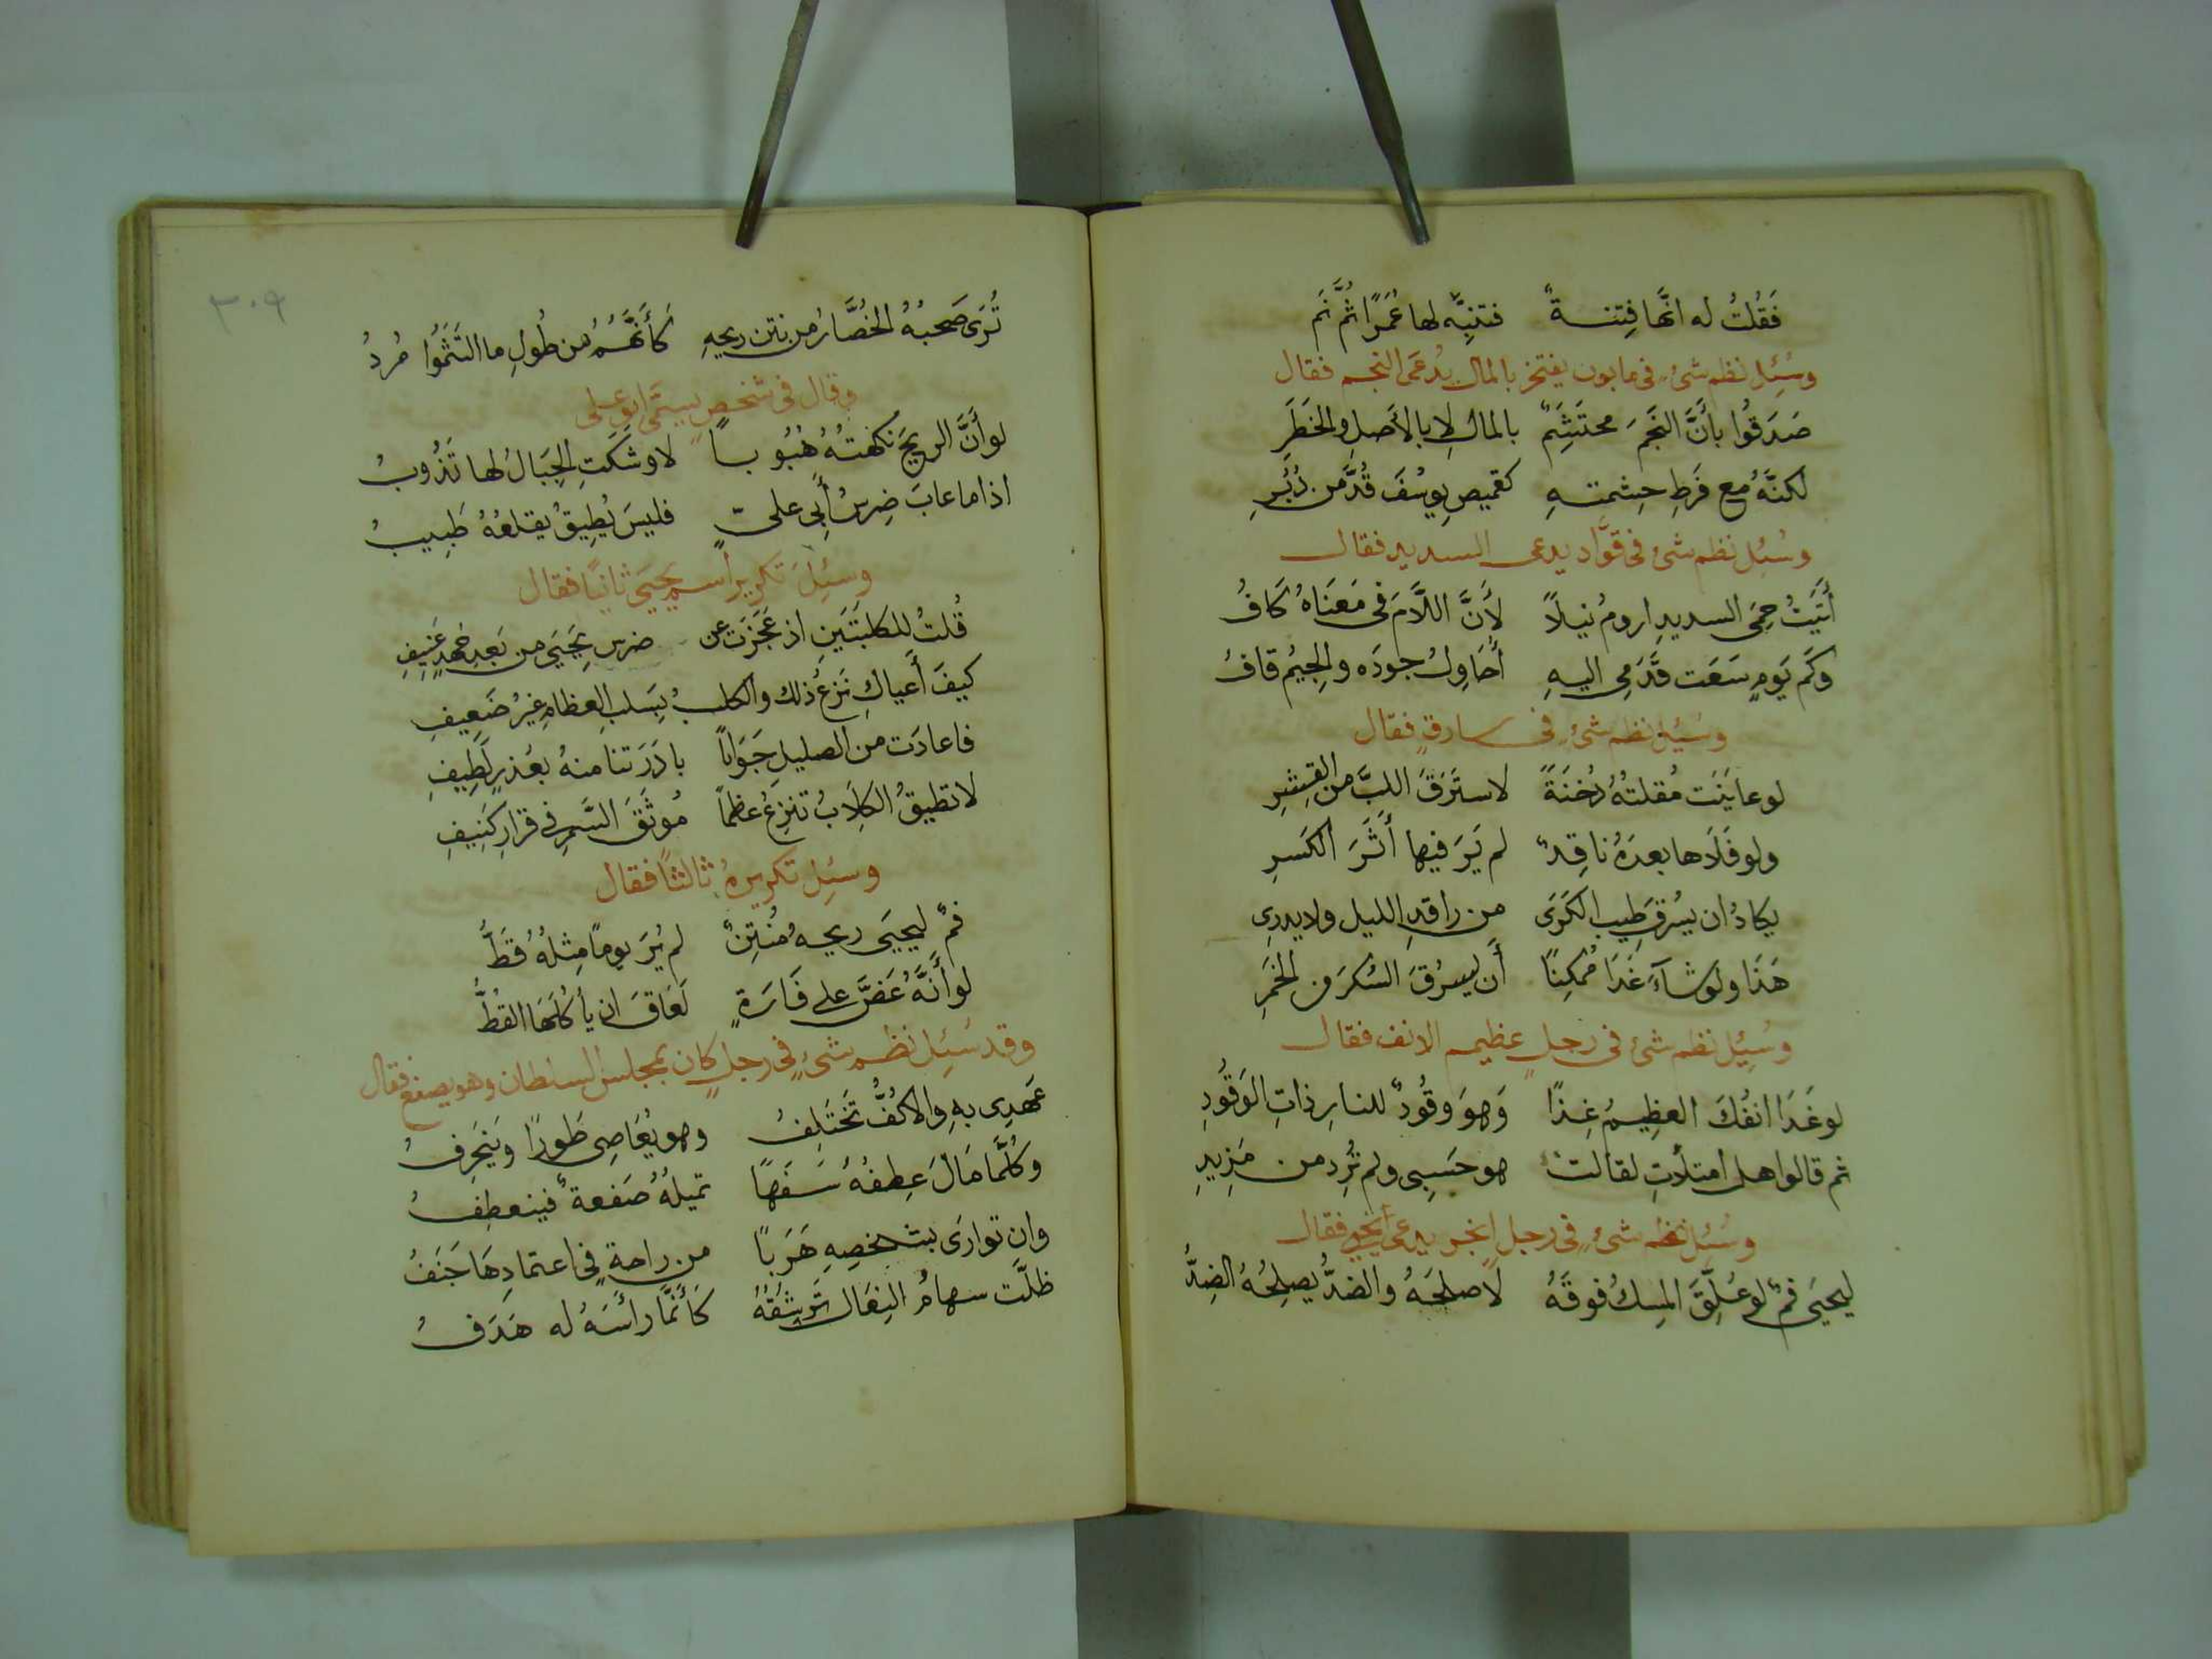 فَقُلتُ له انَّها فِتنةٌ فتنبِّه لها عُمَرًا ثُمَّ نَم
وسُئِل نظم شئ في مابون يفتخر بالمال يُدعَى النجم فقال
صَدَقُوا بأَنَّ النَّجمَ محتَشِمٌ بالمالِ لا بالأصلِ والخَطَرِ
لكنَّهُ مع فَرطِ حِشمتهِ كقميصِ يوسُفَ قُدَّ من دُبُرِ
وسُئِل نظم شئ في قوَّاد يدعى السديد فقال
أتَيتُ حِمَى السديدِ ارومُ نيلاً لأنَّ اللَّامَ في مَعنَاهُ كَافُ
وكَم يَومٍ سَعَت قَدَمِي اليهِ أُحَاوِلُ جودَه والجِيمُ قافُ
وسُئِل نظم شئ في سارقٍ فقال
لوعايَنَت مُقلتُهُ دُخنَةً لاستَرَقَ اللبَّ من القِشرِ
ولو فَلَاها بعدَهُ ناقِدٌ لم يَرَ فيها أَثَرَ الكَسرِ
يكادُ ان يسرُق طِيبَ الكَرَى من راقدِ الليل ولا يدرِي
هَذَا ولو شآءَ غَدَا مُمكِنًا أَن يسرُقَ السُكرَ من الخَمرِ
وسُئِل نظم شئ في رجلٍ عظيم الانف فقال
لو غَدَا انفُكَ العظِيمُ غِذًا وَهوَ وقُودٌ للنارِ ذاتِ الوَقُودِ
ثم قالوا هل امتلأتِ لقالت هو حَسبِي ولم تُرِد من مَزِيدِ
وسُئِل نظم شئ في رجلٍ ابخر يدعى يحيى فقال
ليحيَى فمٌ لو عُلِّقَ المِسكُ فوقَهُ لاصلحَهُ والضدُّ يصلِحُهُ الضِدُّ
٣٠٩
تُرَى صَحبُهُ الحُضَّارُ من نتن ريحِهِ كَأَنَّهُمُ من طُولِ ما التَثَمُوا مُردُ
وقال في شخصٍ يسمَّى ابو علي
لو أَنَّ الريحَ نكهتُهُ هُبُوبًا لاوشكَتِ الجِبَالُ لها تَذُوبُ
اذا ما عابَ ضِرسُ أَبي عليٍّ فليسَ يُطِيقُ يقلعُهُ طَبِيبُ
وسُئِلَ تكرير اسم يحيَى ثانيًا فقال
قُلتُ للكلبتَينِ اذ عَجَزَت عن ضرس يَحيَى من بَعدِ جَهدٍ عَنِيفِ
كيفَ أَعياكِ نَزعُ ذلك والكلبُ بسَلبِ العظامِ غيرُ ضَعِيفِ
فاعادَت من الصليلِ جَوَاباً بادَرَتنا منهُ بعُذرٍ لَطِيفِ
لا تطيقُ الكِلَابُ تنزِعُ عظماً مُوثَقَ السَّمرِ في قرَارِ كَنِيفِ
وسُئِل تكريرهُ ثالثًا فقال
فمٌ ليحيَى ريحهُ مُنتِنٌ لم يُرَ يوماً مِثلُهُ قَطُّ
لو أَنَّهُ عَضَّ على فَارَةٍ لَعَاقَ ان يأكُلَهَا القطُّ
وقد سُئِل نظم شئٍ في رجلٍ كان بمجلس السلطان وهو يصفع فقال
عَهدِي بهِ والاكُفُّ تَختَلِفُ وهو يُعَاصِي طَورًا وَينحَرِفُ
وكُلَّمَا مَالَ عِطفُهُ سَفَهًا تميلُهُ صَفعةٌ فينعطِفُ
وان توارَى بشخصِهِ هَرَباً من راحةٍ في اعتمادِهَا جَنَفُ
ظلَّت سهامُ النِعَالِ تَرشُقُهُ كَأَنَّما رأسَهُ له هَدَفُ